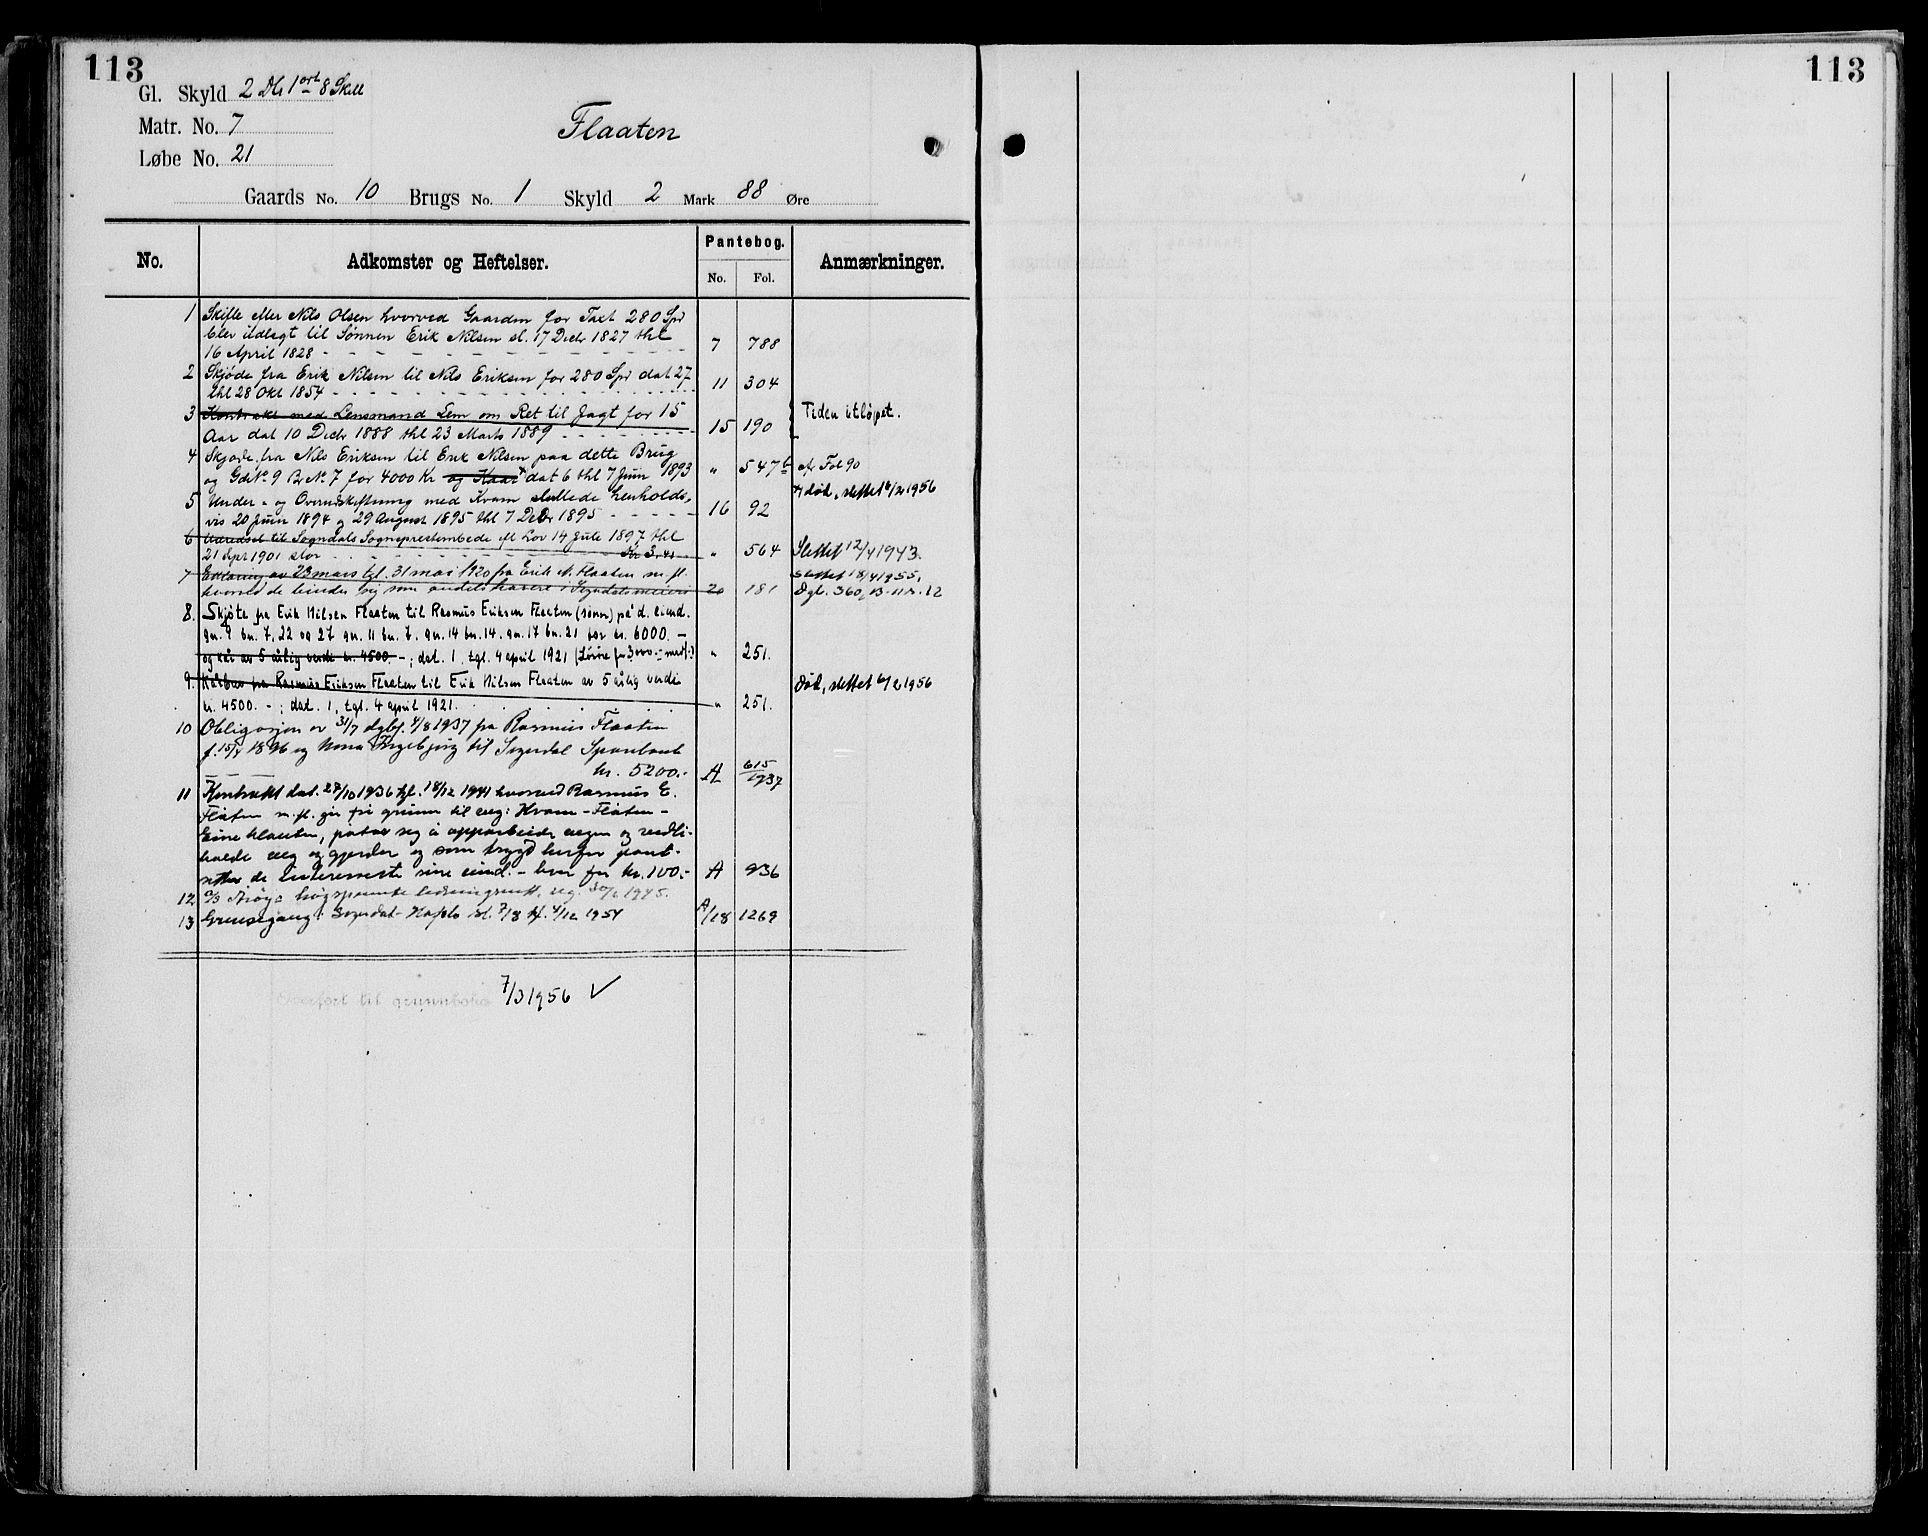 113
113
Gl. Skyld 2 Dlr 1 ort 8 Skill
Matr. No. 7
Løbe No. 21
Flaaten
Gaards No. 10 Brugs No. 1 Skyld 2 Mark 88 Øre
No. Adkomster og Heftelser. Pantebog. No. Fol. Anmærkninger.
1 Skifte efter Nils Olsen hvorved Gaarden for Taxt 280 Spd
blev udlagt til Sønnen Erik Nilsen sl. 17 Decbr 1827 thl
16 April 1828 - 7 788
2 Skjøde fra Erik Nilsen til Nils Eriksen for 280 Spd dat 27
thl 28 Okt 1854 - 11 304
3 Kontrakt med Lensmand Lem om Ret til Jagt for 15
Aar dat 10 Decbr 1888 thl 23 Marts 1889 - 15 190 Tiden utløpet.
4 Skjøde fra Nils Eriksen til Erik Nilsen paa dette Brug
og Gd No 9 Br No 7 for 4000 Kr og Kaar dat 6 thl 7 Juni 1893 " 547 b cfr Fol 90
død, slettet 6/2 1956
5 Under- og Overudskiftning med Kvam sluttede henholds-
vis 20 Juni 1894 og 29 August 1895 thl 7 Decbr 1895 - 16 92
6 til Sogndals Sogneprestembede efl Lov 14 Juli 1897 thl
21 Spt 1901 stor Kr 3,41 " 564 Slettet 12/4 1943.
7 Erklæring av 23 mars tgl. 31 mai 1920 fra Erik N. Flaaten m. fl.
hvorved de binder sig som andelshavere i Sogndals meieri 20 181 slettet 18/4 1955,
Dgb. 360, B. 11 s. 12
8. Skjøte fra Erik Nilsen Flaaten til Rasmus Eriksen Flaaten (sønn) på d. eiend.
gn. 9 bn. 7, 22 og 27 gn. 11 bn. 7. gn. 14 bn. 14. gn. 17 bn. 21 for kr. 6000. -
og kår av 5 årlig verdi kr. 4500. - ; dat. 1, tgl. 4 april 1921 (Løsøre for 3000.- ) " 251.
9. Kårbrev fra Rasmus Eriksen Flaaten til Erik Nilsen Flaaten av 5 årlig verdi
kr. 4500. - ; dat. 1, tgl. 4 april 1921. " 251. død, slettet 6/2 1956
10 Obligasjon av 31/7 dgbf. 4/8 1937 fra Rasmus Flaaten
f. 15/7 1896 og Ingebjørg til Sogndal Sparebank
kr. 5200.- A 615/1937
11 Kontrakt dat. 28/10 1936 tgl. 18/12 1941 hvorved Rasmus E.
Flåten m. fl. gir fri grunn til veg: Kvam - Flåten -
, påtar seg å opparbeide vegen og vedli-
holde veg og gjerder og som trygd herfor pant-
setter de interesserte sine eiend. - hver for kr. 100.- A 936
12 høgspente ledningsnett, 30/6 1945.
13 Grensegang: Sogndal - Hafslo sl. 7/8 tgl. 4/12 1954 A/18 1269
Overført til grunnboka 7/3 1956 ✓